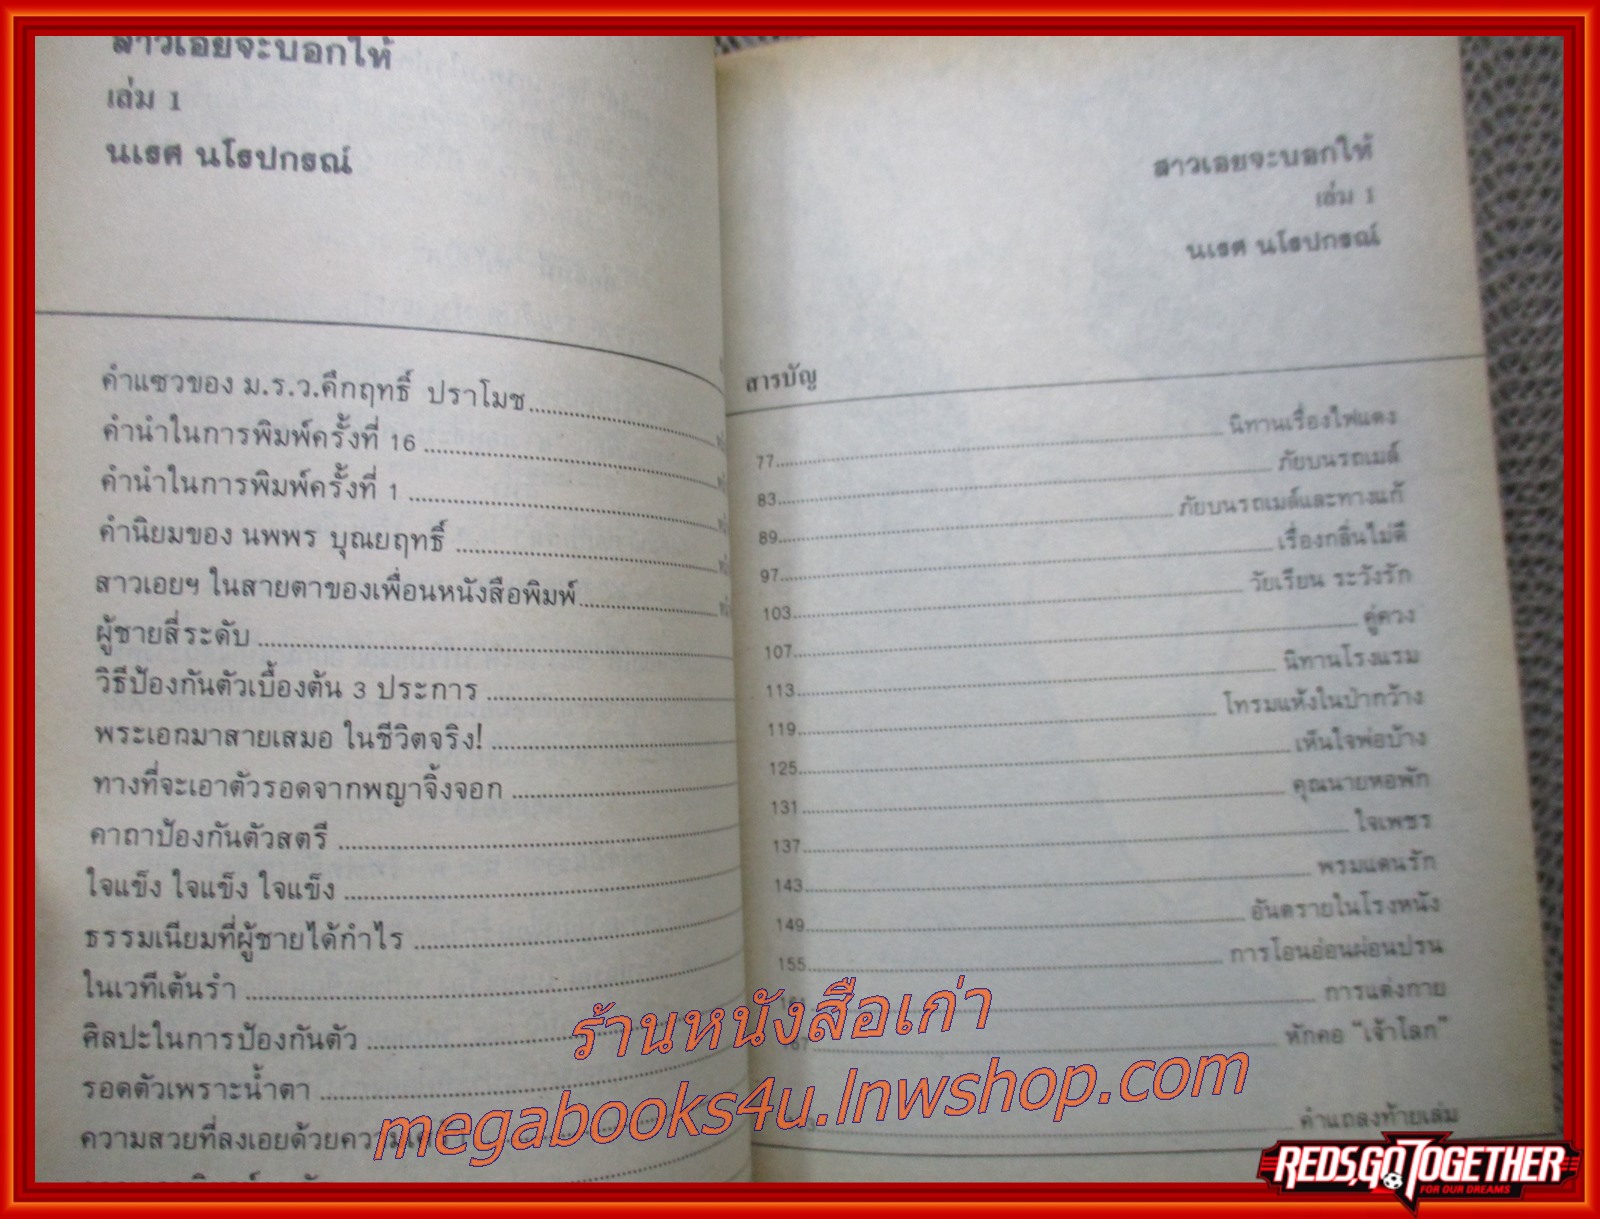 สาวเอยจะบอกให้
เล่ม 1
นเรศ นโรปกรณ์
คำแซวของ ม.ร.ว.คึกฤทธิ์ ปราโมช
คำนำในการพิมพ์ครั้งที่ 16
คำนำในการพิมพ์ครั้งที่ 1
คำนิยมของ นพพร บุณยฤทธิ์
สาวเอยฯ ในสายตาของเพื่อนหนังสือพิมพ์
ผู้ชายสี่ระดับ
วิธีป้องกันตัวเบื้องต้น 3 ประการ
พระเอกมาสายเสมอ ในชีวิตจริง!
ทางที่จะเอาตัวรอดจากพญาจิ้งจอก
คาถาป้องกันตัวสตรี
ใจแข็ง ใจแข็ง ใจแข็ง
ธรรมเนียมที่ผู้ชายได้กำไร
ในเวทีเต้นรำ
ศิลปะในการป้องกันตัว
รอดตัวเพราะน้ำตา
ความสวยที่ลงเอยด้วย
สาวเอยจะบอกให้
เล่ม 1
นเรศ นโรปกรณ์
สารบัญ
77 นิทานเรื่องไฟแดง
83 ภัยบนรถเมล์
89 ภัยบนรถเมล์และทางแก้
97 เรื่องกลิ่นไม่ดี
103 วัยเรียน ระวังรัก
107 คู่ควง
113 นิทานโรงแรม
119 โทรมแห้งในป่ากว้าง
125 เห็นใจพ่อบ้าง
131 คุณนายหอพัก
137 ใจเพชร
143 พรมแดนรัก
149 อันตรายในโรงหนัง
155 การโอนอ่อนผ่อนปรน
การแต่งกาย
หักคอ "เจ้าโลก"
คำแถลงท้ายเล่ม
ร้านหนังสือเก่า
megabooks4u.lnwshop.com
REDS,GO TOGETHER
FOR OUR DREAMS